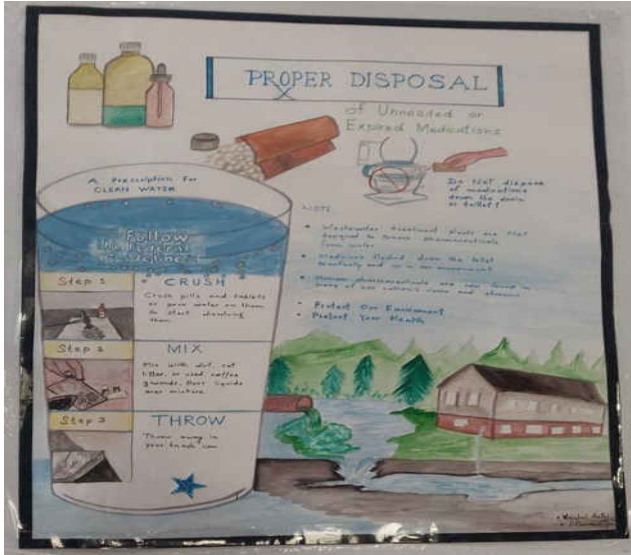 PROPER DISPOSAL
of Unneeded or
Expired Medications
A Prescription For
CLEAN WATER
Do NOT dispose
of medications
down the drain
or toilet!
Follow
the Federal
Guidelines
NOTE:
• Wastewater treatment plants are NOT
designed to remove pharmaceuticals
from water
• Medicines flushed down the toilet
eventually end up in our environment
• Human pharmaceuticals are now found in
many of our nation's rivers and streams
• Protect Our Environment
• Protect Your Health
Step 1
• CRUSH
Crush pills and tablets
or pour water on them
to start dissolving
them.
Step 2
MIX
Mix with dirt, cat
litter, or used coffee
grounds. Pour liquids
over mixture.
Step 3
THROW
Throw away in
your trash can.